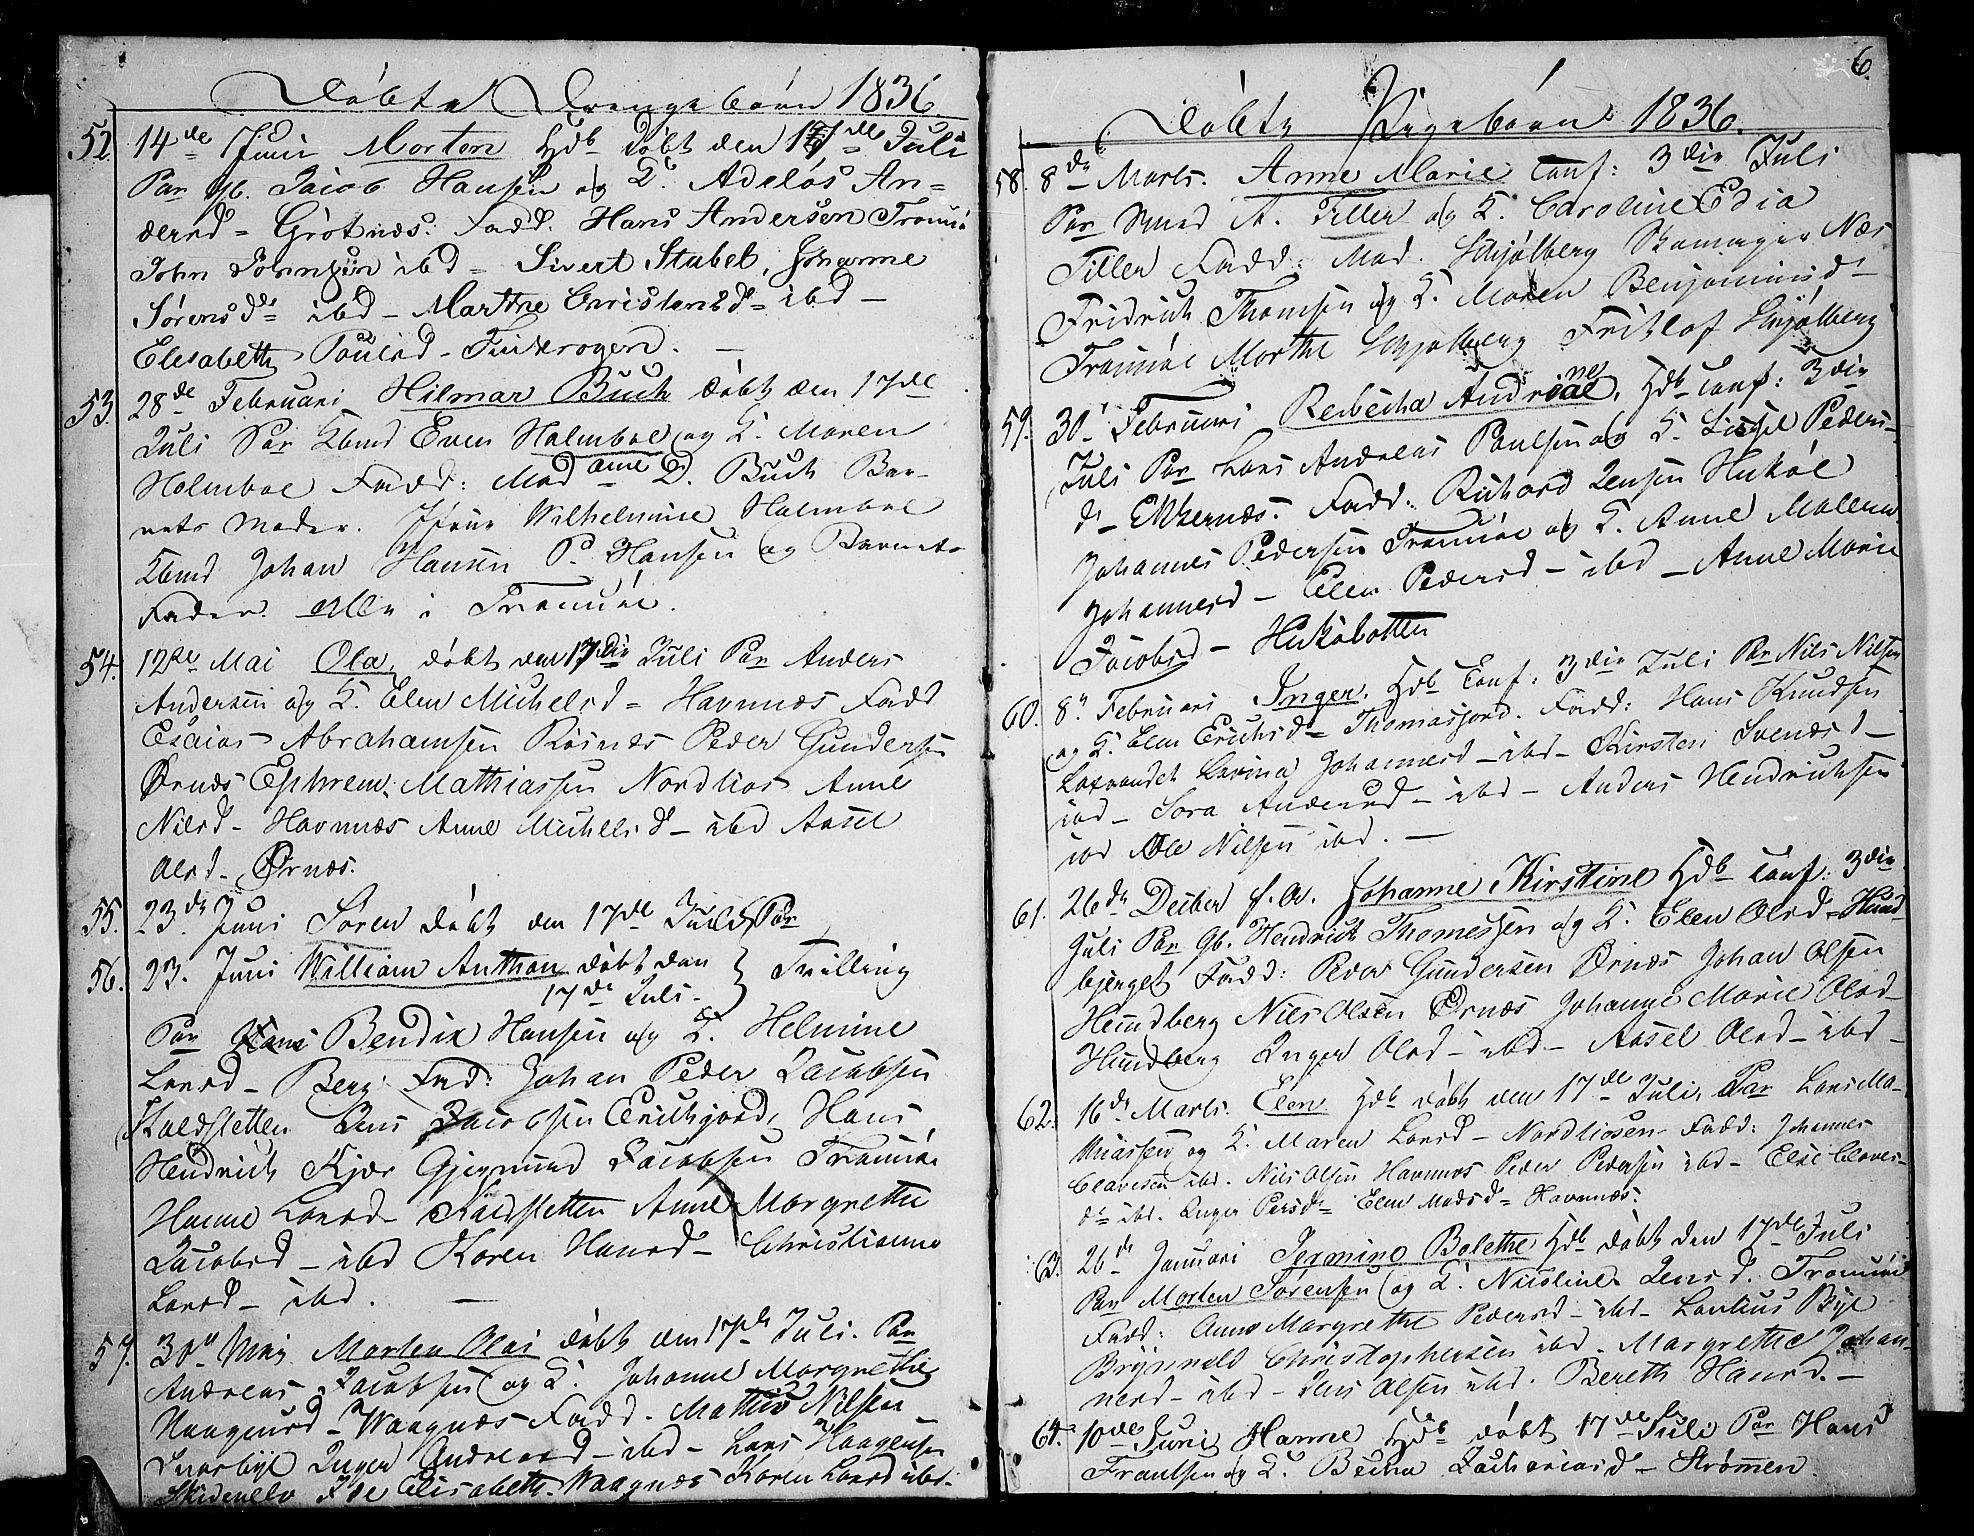 Döbte Drengebörn 1836
52. 14de Juni Morten Hdb döbt den 17de Juli
Par gb. Jacob Hansen og K. Adelös An=
dersd = Grötnæs. Fadd. Hans Andersen Tromsö
John Johnsen ibd = Sivert Stabel, Johanne
Sörensdr ibd – Marthe Christensd = ibd –
Elesabeth Poulsd – Finkrogen. –
53. 28de Februari Hilmar Buch döbt den 17de
Juli Par Kbmd Even Holmboe og K. Maren
Holmboe Fadd: Madame D. Buch Bar-
nets Moder. Jfrue Wilhelmine Holmboe
Kbmd Johan Hansen P. Hansen og Barnets
Fader. Alle i Tromsöe.
54. 12te Mai Ola, döbt den 17die Juli Par Anders
Andersen og K. Elen Michelsd = Havnnæs Fadd
Esaias Abrahamsen Rösnæs Peder Gundersen
Ørnæs Ephrem Mathiassen Nordlios Anne
Nilsd – Havnnæs Anne Michelsd – ibd Aasel
Olsd – Ørnæs.
55. 23de Juni Sören döbt den 17de Juli Par
56. 23. Juni William Anthon döbt den } Tvilling
17de Juli.
Par Hans Bendix Hansen og K. Helmine
Larsd – Berg. Fad: Johan Peder Jacobsen
Kaldsletten Jens Jacobsen Erichjord, Hans
Hendrich Kjær Gjegmund Jacobsen Tromsöe
Hanne Larsd – Kaldsletten Anne Margrethe
Jacobsd – ibd Karen Hansd – Christianne
Larsd – ibd. –
57. 30te Maj Morten Olai döbt den 17de Juli. Par
Andreas Jacobsen og K. Johanne Margrethe
Haagensd – Waagnæs Fadd. Mathis Nilsen
Snarbye Inger Andreasd – ibd – Lars Haagensen
Skidenelv Elisabeth – Waagnæs Karen Larsd ibd.
6.
Döbte Pigebörn 1836.
58. 8de Marts. Anne Marie Conf: 3die Juli
Par Smed A. Tiller og K. Caroline Edia
Tiller Fadd: Mad. Schjölberg Skomager Næs
Fridrich Thomsen og K. Maren Benjaminsd –
Tromsöe Marthe Schjölberg Fritlof Schjölberg
59. 30te Februari Rebecha Andrine, Hdb Conf: 3die
Juli Par Lars Andreas Paulsen og K. Lissel Peders-
dr – Ekkernæs. Fadd: Richard Jensen Huköe
Johannes Pedersen Tromsöe og K. Anne Malena
Johannesd – Elen Pedersd – ibd – Anne Marie
Jacobsd – Huköbotten
60. 8de Februari Inger. Hdb Conf: 3die Juli Par Nils Nilsen
og K. Elen Erichsd = Thomasjord. Fadd: Hans Knudsen
Laxvandet Lovina Johannesd – ibd – Kirsten Svensd –
ibd – Sara Andersd – ibd – Anders Hendrichsen
ibd Ole Nilsen ibd. –
61. 26de Decber f. A. Johanne Kirstine Hdb Conf: 3die
Juli Par gb. Hendrich Thomessen og K. Elen Olsd = Hund-
bjerget Fadd: Peder Gundersen Ørnæs Johan Olsen
Hundberg Nils Olsen Ørnæs Johanne Marie Olsd –
Hundberg Inger Olsd – ibd – Aasel Olsd – ibd –
62. 16de Marts. Elen Hdb döbt den 17de Juli, Par Lars Ma-
thiassen og K. Maren Larsd – Nordliosen Fadd: Johannes
Clavesen ibd. Nils Olsen Havnnæs Peder Pedersen ibd – Else Claves-
dr ibd. Inger Persd = Elen Madsd = Havnnæs.
63. 26de Januari Jermine Bolethe Hdb döbt den 17de Juli
Par Morten Sörensen og K. Nicoline Jensd. Tromsöe
Fadd: Anne Margrethe Pedersd – ibd – Lautius Bye
Brynnild Christophersen ibd – Margrethe Johan-
nesd – ibd – Jens Olsen ibd. Bereth Hansd. –
64. 10de Juni Hanne Hdb döbt 17de Juli Par Hans
Frantsen og K. Becha Zachariasd – Strömmen.